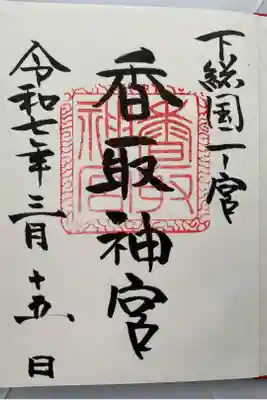 下総国一ノ宮
香取神宮
令和七年三月十五日
香取神宮